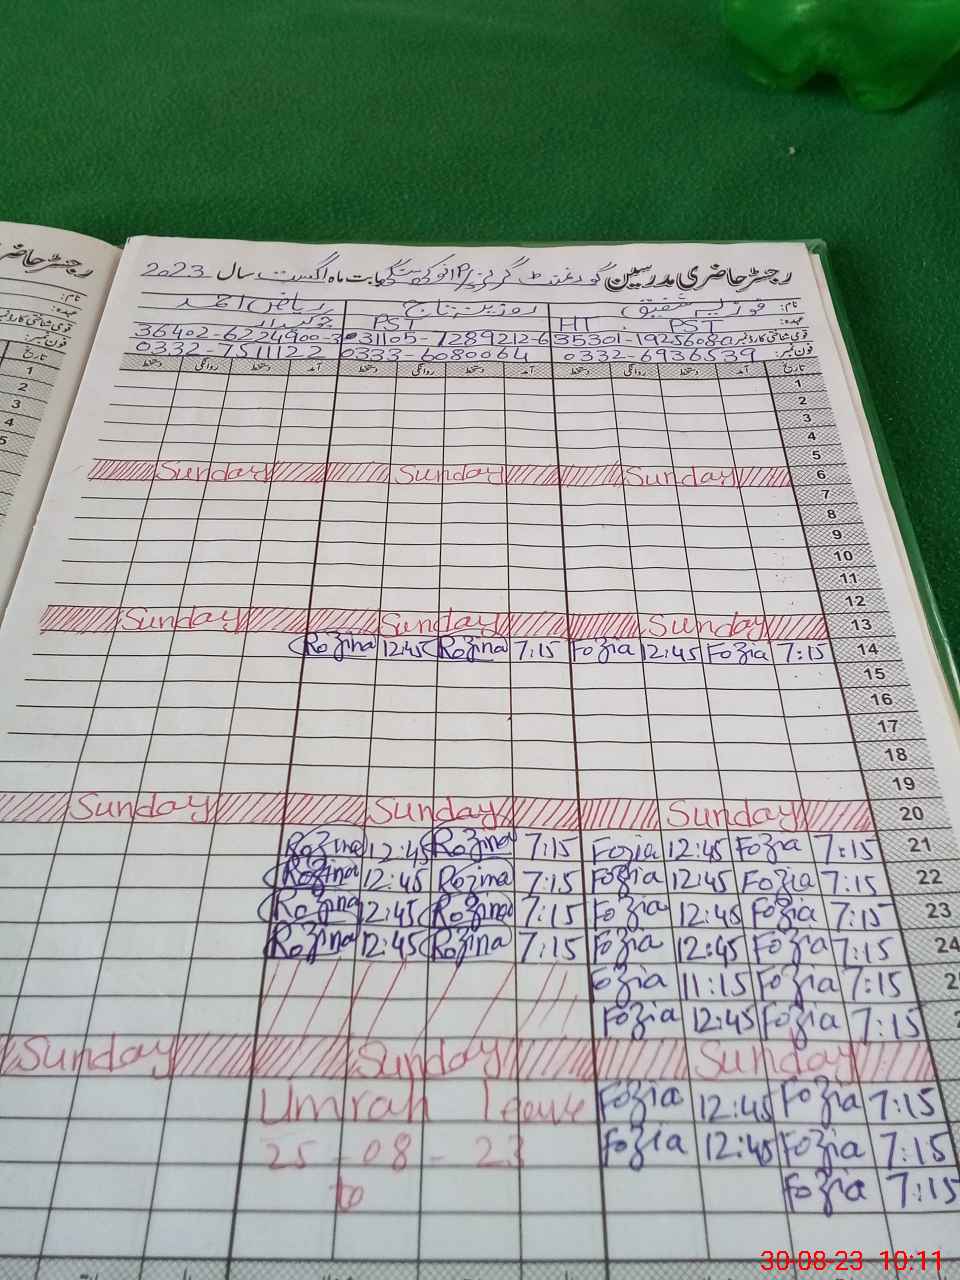 رجسٹر حاضری مدرسین گورنمنٹ گرلز بابت ماہ اگست سال 2023
نام: فوزیہ شفیق روزینہ تاج ریاض احمد
عہدہ: PST HT PST چوکیدار
قومی شناختی کارڈ نمبر 31105-7289212-6 36402-6224900-3
فون نمبر: 0332-6936539 0333-6080064 0332-7511122
تاریخ آمد دستخط روانگی دستخط آمد دستخط روانگی دستخط آمد دستخط روانگی دستخط
1
2
3
4
5
Sunday Sunday Sunday 6
7
8
9
10
11
12
Sunday Sunday Sunday 13
Rozina 12:45 Rozina 7:15 Fozia 12:45 Fozia 7:15 14
15
16
17
18
19
Sunday Sunday Sunday 20
Rozina 12:45 Rozina 7:15 Fozia 12:45 Fozia 7:15 21
Rozina 12:45 Rozina 7:15 Fozia 12:45 Fozia 7:15 22
Rozina 12:45 Rozina 7:15 Fozia 12:45 Fozia 7:15 23
Rozina 12:45 Rozina 7:15 Fozia 12:45 Fozia 7:15 24
Fozia 11:15 Fozia 7:15
Fozia 12:45 Fozia 7:15
Sunday Sunday Sunday
Umrah leave Fozia 12:45 Fozia 7:15
25-08-23 Fozia 12:45 Fozia 7:15
to Fozia 7:15
رجسٹر حاضر
نام:
عہدہ:
قومی شناختی کارڈ نمبر
فون نمبر:
تاریخ
1
2
3
4
5
30-08-23 10:11